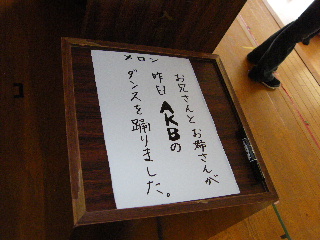 メロン
お兄さんとお姉さんが
昨日AKBの
ダンスを踊りました。